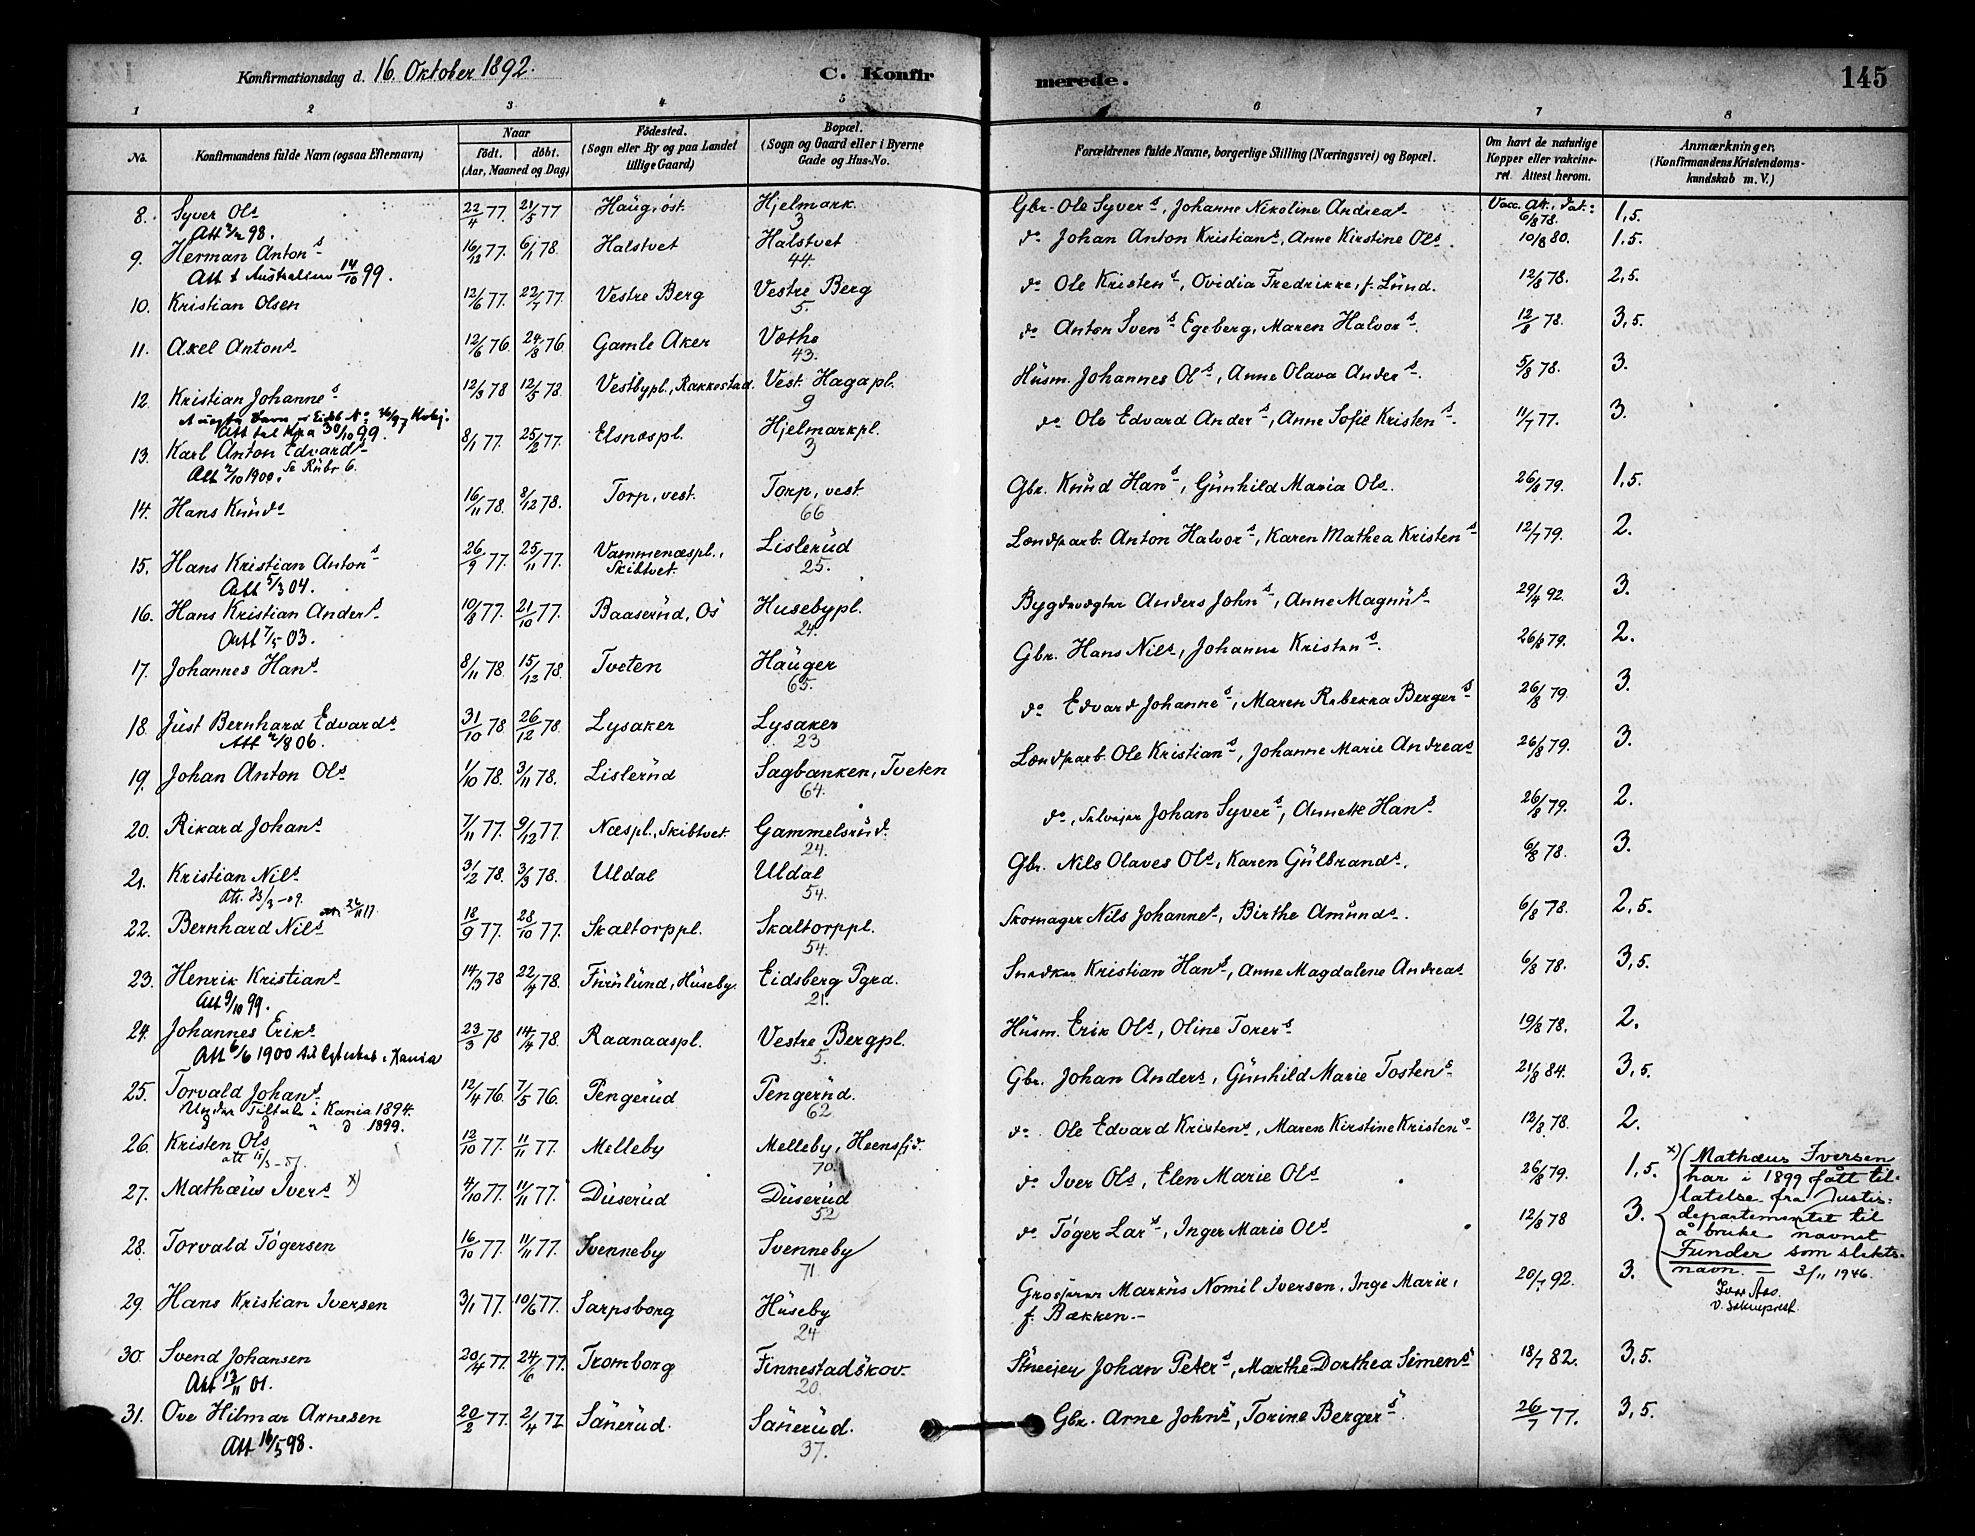 Konfirmationsdag d. 16. Oktober 1892.
C. Konfir
merede.
145
1 2 3 4 5 6 7 8
No.
Konfirmandens fulde Navn (ogsaa Efternavn)
Naar
födt. döbt.
(Aar, Maaned og Dag)
Födested.
(Sogn eller By og paa Landet
tillige Gaard)
Bopæl.
(Sogn og Gaard eller i Byerne
Gade og Hus-No.
Forældrenes fulde Navne, borgerlige Stilling (Næringsvei) og Bopæl.
Om havt de naturlige
Kopper eller vakcine-
ret. Attest herom.
Anmærkninger.
(Konfirmandens Kristendoms-
kundskab m. V.)
8. Syver Ols 22/4 77. 21/5 77 Haug, öst. Hjelmark. 3 Gbr. Ole Syvers, Johanne Nikoline Andreas Vacc. Att., dat.: 6/8 78. 1,5.
Att 98.
9. Herman Antons 16/12 77. 6/1 78. Halstvet Halstvet 44. do Johan Anton Kristians, Anne Kirstine Ols. 10/8 80. 1.5.
Att t Australien 14/10 99.
10. Kristian Olsen 12/6 77. 22/7 77. Vestre Berg Vestre Berg 5. do Ole Kristens, Ovidia Fredrikke, f. Lund. 12/8 78. 2,5.
11. Axel Antons 12/6 76 24/8 76 Gamle Aker Votho 43. do Anton Svens Egeberg, Maren Halvors. 12/8 78. 3,5.
12. Kristian Johannes 12/3 78 12/5 78. Vestbypl., Rakkestad. Vest. Hagapl. 9 Husm. Johannes Ols, Anne Olava Anders. 5/8 78. 3.
Att tel Kra 30/10 99.
13. Karl Anton Edvards 8/1 77. 25/2 77. Elsnæspl. Hjelmarkpl. 3 do Ole Edvard Anders, Anne Sofie Kristens 11/7 77. 3.
Att 2/10 1900. Se Rubr 6.
14. Hans Knuds 16/11 78. 8/12 78. Torp, vest. Torp, vest. 66 Gbr. Knud Hans, Gunhild Maria Ols. 26/8 79. 1,5.
15. Hans Kristian Antons 26/9 77. 25/11 77. Vammenæspl., Skibtvet. Lislerud 25. Landparb. Anton Halvors, Karen Mathea Kristens 12/7 79. 2.
Att 5/3 04.
16. Hans Kristian Anders 10/8 77. 21/10 77. Baaserud, Os Husebypl. 24. Bygdevægter Anders Johns, Anne Magnus 29/4 92. 3.
Att 7/5 03.
17. Johannes Hans 8/11 78. 15/12 78. Tveten Hauger 65. Gbr. Hans Nils, Johanne Kristens. 26/8 79. 2.
18. Just Bernhard Edvards 31/10 78 26/12 78. Lysaker Lysaker 23 do Edvard Johannes, Maren Rebekka Bergers 26/8 79. 3.
Att 2/8 06.
19. Johan Anton Ols 1/10 78. 3/11 78. Lislerud Sagbanken, Tveten 64. Landparb. Ole Kristians, Johanne Marie Andreas 26/8 79. 3.
20. Rikard Johans 7/11 77. 9/12 77. Næspl., Skibtvet. Gammelsrud. 24. do, Selveier Johan Syvers, Annette Hans 26/8 79. 2.
21. Kristian Nils 3/2 78. 3/3 78. Uldal Uldal 54. Gbr. Nils Olaves Ols, Karen Gulbrands. 6/8 78. 3.
Att. 23/3 – 09.
22. Bernhard Nils 18/9 77. 28/10 77. Skaltorppl. Skaltorppl. 54. Skomager Nils Johannes, Birthe Amunds. 6/8 78. 2,5.
23. Henrik Kristians 14/3 78 22/4 78. Furulund, Huseby. Eidsberg Pgrd. 21. Snedker Kristian Hans, Anne Magdalene Andreas 6/8 78. 3,5.
Att 9/10 99.
24. Johannes Eriks 23/3 78 14/4 78. Raanaaspl. Vestre Bergpl. 5. Husm. Erik Ols, Oline Torers 19/8 78. 2.
Att 6/6 1900 til Lysning i Kania
25. Torvald Johans 12/4 76. 7/5 76. Pengerud Pengerud. 62 Gbr. Johan Anders, Gunhild Marie Tostens 21/8 84. 3,5.
Under Tiltale i Kania 1894.
" d 1899.
26. Kristen Ols 12/10 77. 11/11 77. Melleby Melleby, Heensfjd. 70. do Ole Edvard Kristens, Maren Kirstine Kristens 12/8 78. 2.
27. Mathæus Ivers x) 4/10 77. 11/11 77. Duserud Duserud 52 do Iver Ols, Elen Marie Ols 26/8 79. 1,5.
28. Torvald Tögersen 16/10 77. 11/11 77. Svenneby Svenneby 71. do Töger Lars, Inger Marie Ols 12/8 78 3.
29. Hans Kristian Iversen 3/1 77. 10/6 77. Sarpsborg Huseby 24 Grosserer Markus Nomil Iversen, Inge Marie, 20/7 92. 3.
f. Bækken.–
30. Svend Johansen 20/4 77. 24/6 77. Tromborg Finnestadskov. 20. Johan Peters, Marthe Dorthea Simens 18/7 82. 3,5.
Att 13/11 01.
31. Ove Hilmar Arnesen 20/2 77. 2/4 77 Sanerud. Sanerud. 37. Gbr. Arne Johns, Torine Bergers. 26/7 77. 3,5.
Att 16/5 98.
x) Mathæus Iversen
har i 1899 fått til-
latelse fra Justis-
departementet til
å bruke navnet
Funder som slekts-
navn. — 3/11 1946.
Ivar Aas.
v. sokneprest.